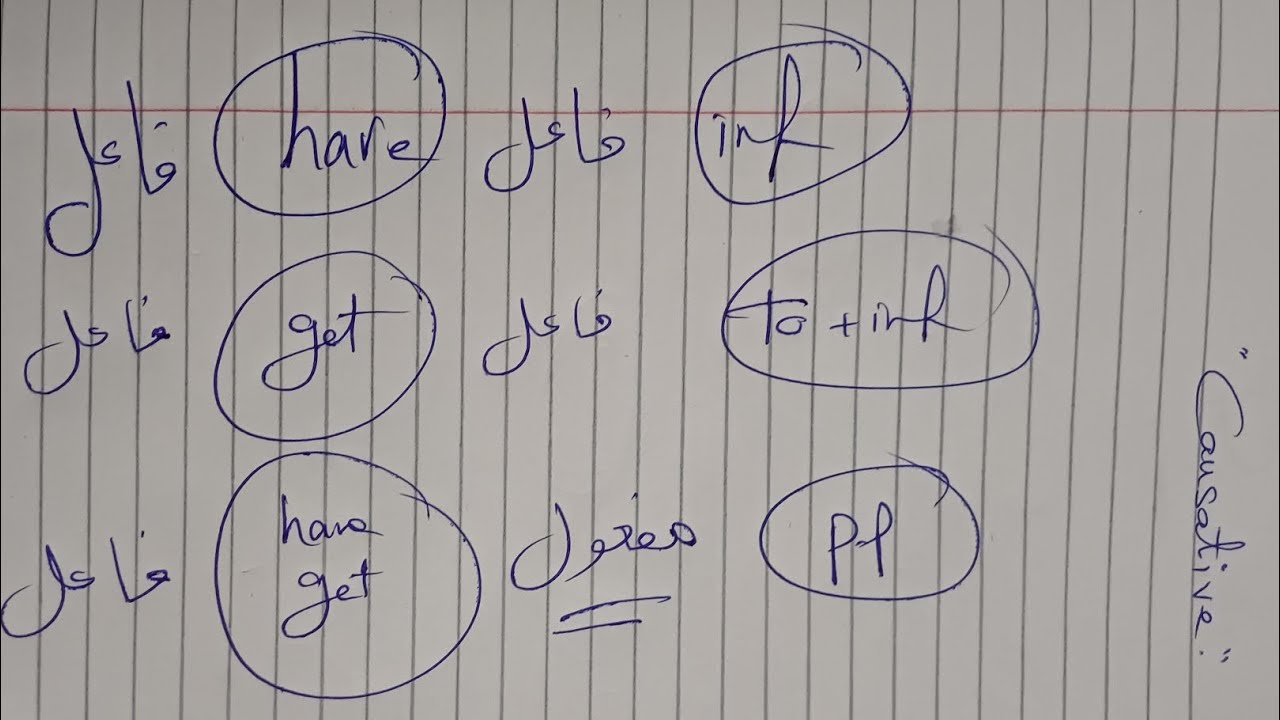 فاعل have فاعل inf
فاعل get فاعل to + inf
فاعل have get مفعول pp
"Causative."